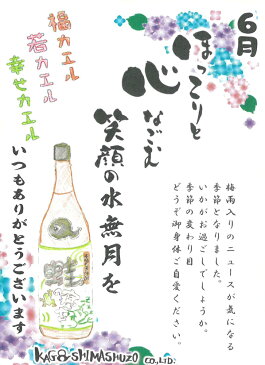 6月
ほっこりと
心なごむ
笑顔の水無月を
梅雨入りのニュースが気になる
季節となりました。
いかがお過ごしでしょうか。
季節の変わり目
どうぞ御身体ご自愛ください。
福カエル
若カエル
幸せカエル
いつもありがとうございます
KAGOSHIMASHUZO CO.,LTD.